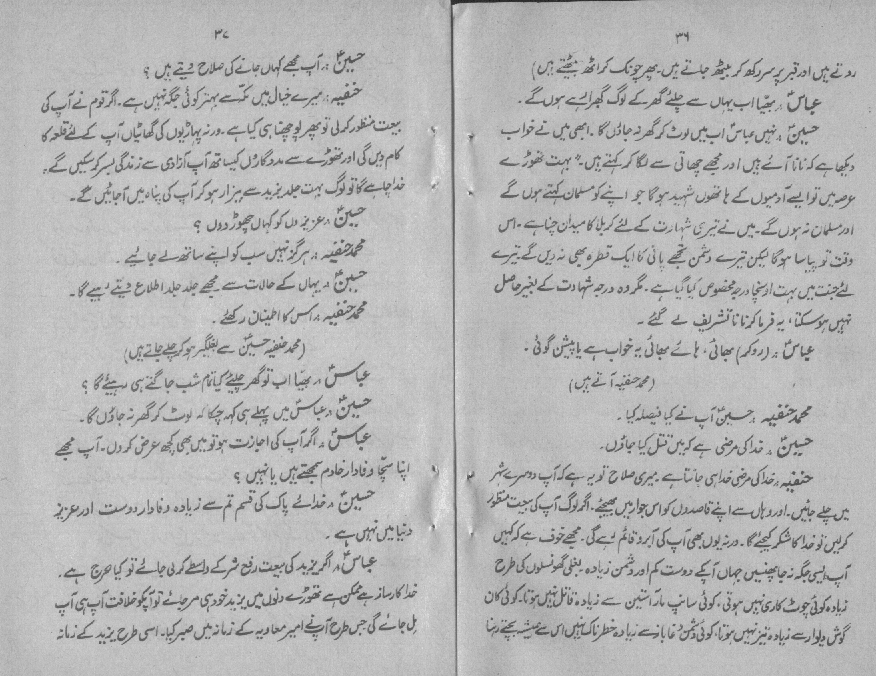 ۳۶
روتے ہیں اور قبر پر سر رکھ کر بیٹھ جاتے ہیں۔ پھر چونک کر اٹھ بیٹھتے ہیں)
عباسؑ :۔ بھیّا اب یہاں سے چلئے گھر کے لوگ گھبرا رہے ہوں گے۔
حسینؑ :۔ نہیں عباسؑ اب میں لوٹ کر گھر نہ جاؤں گا۔ ابھی میں نے خواب
دیکھا ہے کہ نانا آئے ہیں اور مجھے چھاتی سے لگا کر کہتے ہیں۔ "بہت تھوڑے
عرصہ میں تو ایسے آدمیوں کے ہاتھوں شہید ہوگا جو اپنے کو مسلمان کہتے ہوں گے
اور مسلمان نہ ہوں گے۔ میں نے تیری شہادت کے لئے کربلا کا میدان چنا ہے۔ اس
وقت تو پیاسا ہوگا لیکن تیرے دشمن تجھے پانی کا ایک قطرہ بھی نہ دیں گے۔ تیرے
لئے جنت میں بہت اونچا درجہ مخصوص کیا گیا ہے۔ مگر وہ درجہ شہادت کے بغیر حاصل
نہیں ہو سکتا، یہ فرما کر نانا تشریف لے گئے۔
عباسؑ :۔ (رو کر) بھائی، ہائے بھائی یہ خواب ہے یا پیشن گوئی۔
(محمد حنفیہ آتے ہیں)
محمد حنفیہ :۔ حسینؑ آپ نے کیا فیصلہ کیا۔
حسینؑ :۔ خدا کی مرضی ہے کہ میں قتل کیا جاؤں۔
حنفیہ :۔ خدا کی مرضی خدا ہی جانتا ہے۔ میری صلاح تو یہ ہے کہ آپ دوسرے شہر
میں چلے جائیں۔ اور وہاں سے اپنے قاصدوں کو اس جوار میں بھیجئے۔ اگر لوگ آپ کی بیعت منظور
کر لیں تو خدا کا شکر کیجئے گا۔ ورنہ یوں بھی آپ کی آبرو قائم رہے گی۔ مجھے خوف ہے کہ کہیں
آپ ایسی جگہ نہ جا پھنسیں جہاں آپ کے دوست کم اور دشمن زیادہ۔ بغلی گھونسلوں کی طرح
زیادہ کوئی چوٹ کاری نہیں ہوتی، کوئی سانپ مار آستین سے زیادہ قاتل نہیں ہوتا۔ کوئی کان
گوش دیوار سے زیادہ تیز نہیں ہوتا، کوئی دشمن دغا باز سے زیادہ خطرناک نہیں اس سے ہمیشہ بچتے رہنا
۳۷
حسینؑ :۔ آپ مجھے کہاں جانے کی صلاح دیتے ہیں ؟
حنفیہ :۔ میرے خیال میں مکّہ سے بہتر کوئی جگہ نہیں ہے۔ اگر قوم نے آپ کی
بیعت منظور کر لی تو پھر پوچھنا ہی کیا ہے۔ ورنہ پہاڑیوں کی گھاٹیاں آپ کے لئے قلعہ کا
کام دیں گی اور تھوڑے سے مددگاروں کیساتھ آپ آزادی سے زندگی بسر کر سکیں گے۔
خدا چاہے گا تو لوگ بہت جلد یزید سے بیزار ہو کر آپ کی پناہ میں آجائیں گے۔
حسینؑ :۔ عزیزوں کو کہاں چھوڑ دوں ؟
محمد حنفیہ :۔ ہرگز نہیں سب کو اپنے ساتھ لے جائیے۔
حسینؑ :۔ یہاں کے حالات سے مجھے جلد جلد اطلاع دیتے رہیے گا۔
محمد حنفیہ :۔ اس کا اطمینان رکھئے۔
(محمد حنفیہ حسینؑ سے بغلگیر ہو کر چلے جاتے ہیں)
عباسؑ :۔ بھیّا اب تو گھر چلیئے کیا تمام شب جاگتے ہی رہیئے گا ؟
حسینؑ :۔ عباسؑ میں پہلے ہی کہہ چکا کہ لوٹ کر گھر نہ جاؤں گا۔
عباسؑ :۔ اگر آپ کی اجازت ہو تو میں بھی کچھ عرض کروں۔ آپ مجھے
اپنا سچّا وفادار خادم سمجھتے ہیں یا نہیں ؟
حسینؑ :۔ خدائے پاک کی قسم تم سے زیادہ وفادار دوست اور عزیز
دنیا میں نہیں ہے۔
عباسؑ :۔ اگر یزید کی بیعت رفع شر کے واسطے کر لی جائے تو کیا حرج ہے۔
خدا کارساز ہے ممکن ہے تھوڑے دنوں میں یزید خود ہی مر جائے تو آپکو خلافت آپ ہی آپ
مل جائے گی جس طرح آپ نے امیر معاویہ کے زمانہ میں صبر کیا۔ اسی طرح یزید کے زمانہ